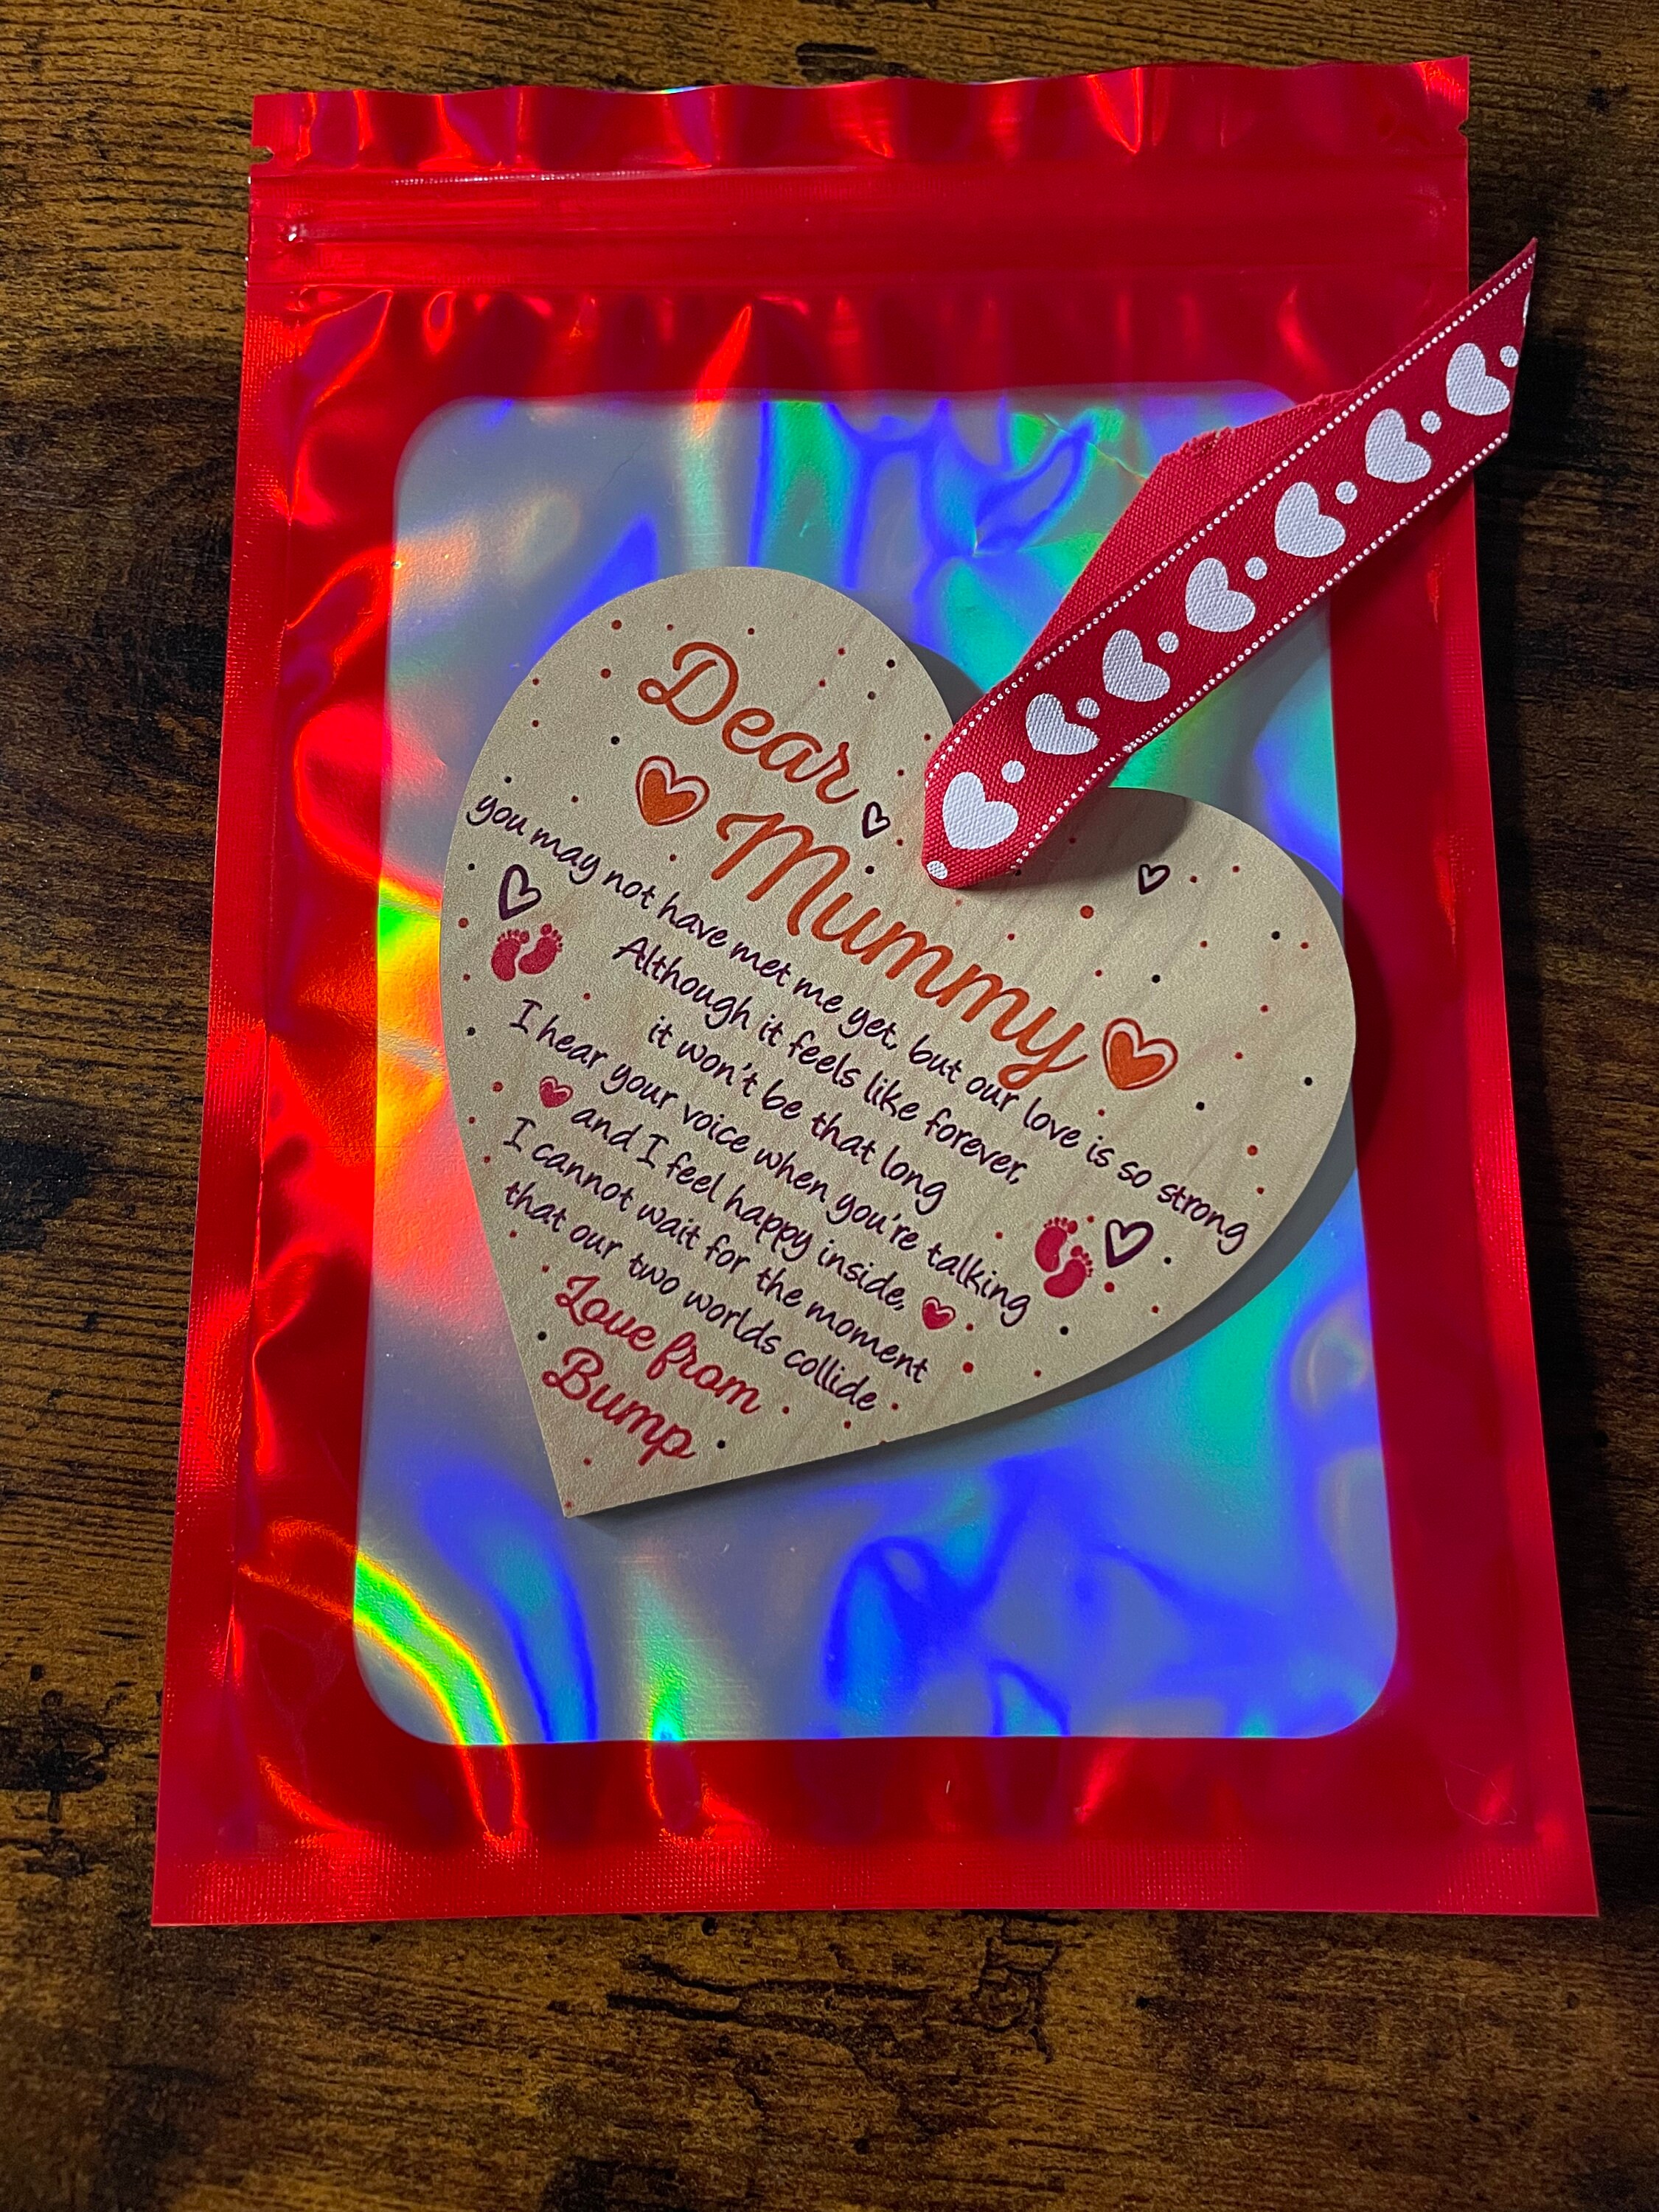 Dear
Mummy
you may not have met me yet, but our love is so strong
Although it feels like forever,
it won't be that long
I hear your voice when you're talking
and I feel happy inside,
I cannot wait for the moment
that our two worlds collide
Love from
Bump